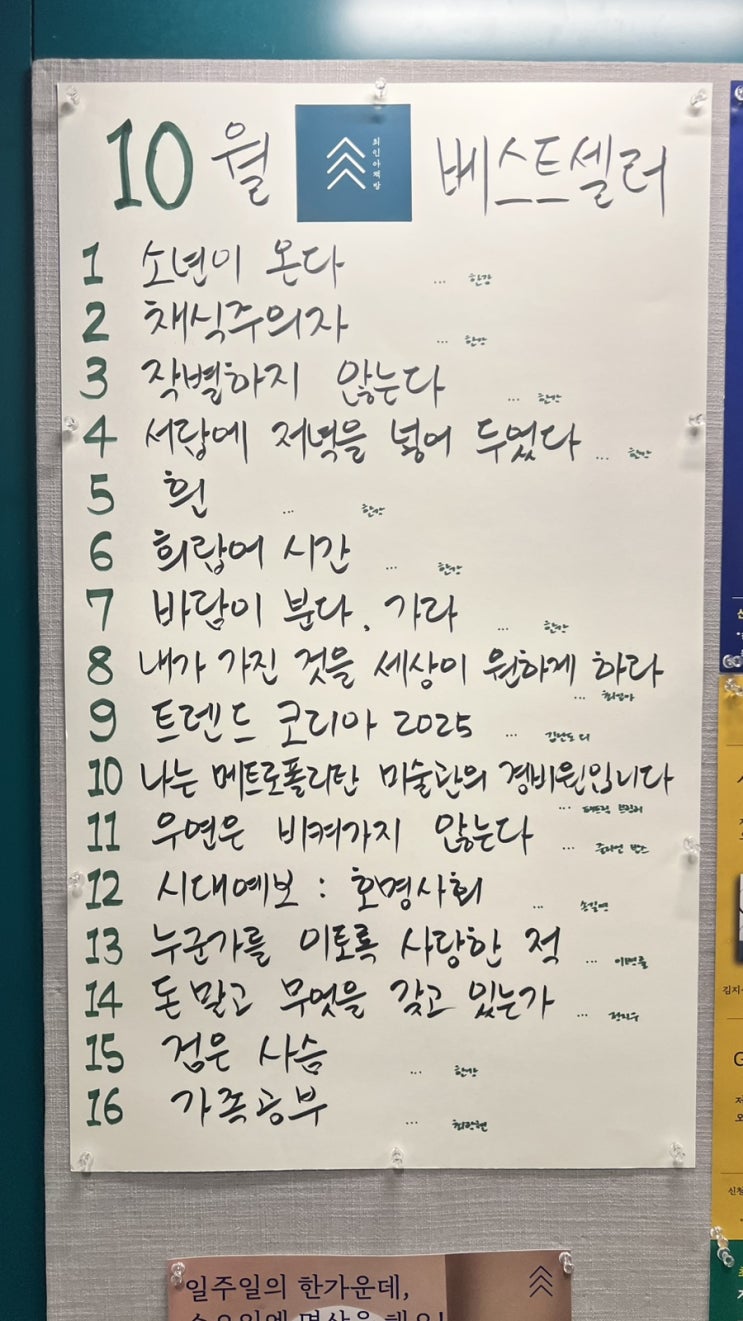 10월 최인아책방 베스트셀러
1 소년이 온다 ... 한강
2 채식주의자 ... 한강
3 작별하지 않는다 ... 한강
4 서랍에 저녁을 넣어 두었다 ... 한강
5 흰 ... 한강
6 희랍어 시간 ... 한강
7 바람이 분다, 가라 ... 한강
8 내가 가진 것을 세상이 원하게 하라
... 최인아
9 트렌드 코리아 2025 ... 김난도 외
10 나는 메트로폴리탄 미술관의 경비원입니다
... 패트릭 브링리
11 우연은 비켜가지 않는다 ... 줄리언 반스
12 시대예보 : 호명사회 ... 송길영
13 누군가를 이토록 사랑한 적 ... 이병률
14 돈 말고 무엇을 갖고 있는가 ... 정지우
15 검은 사슴 ... 한강
16 가족공부 ... 최광현
일주일의 한가운데,